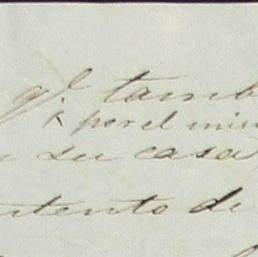 q.e tamb
por el mis
su casa
ntento de